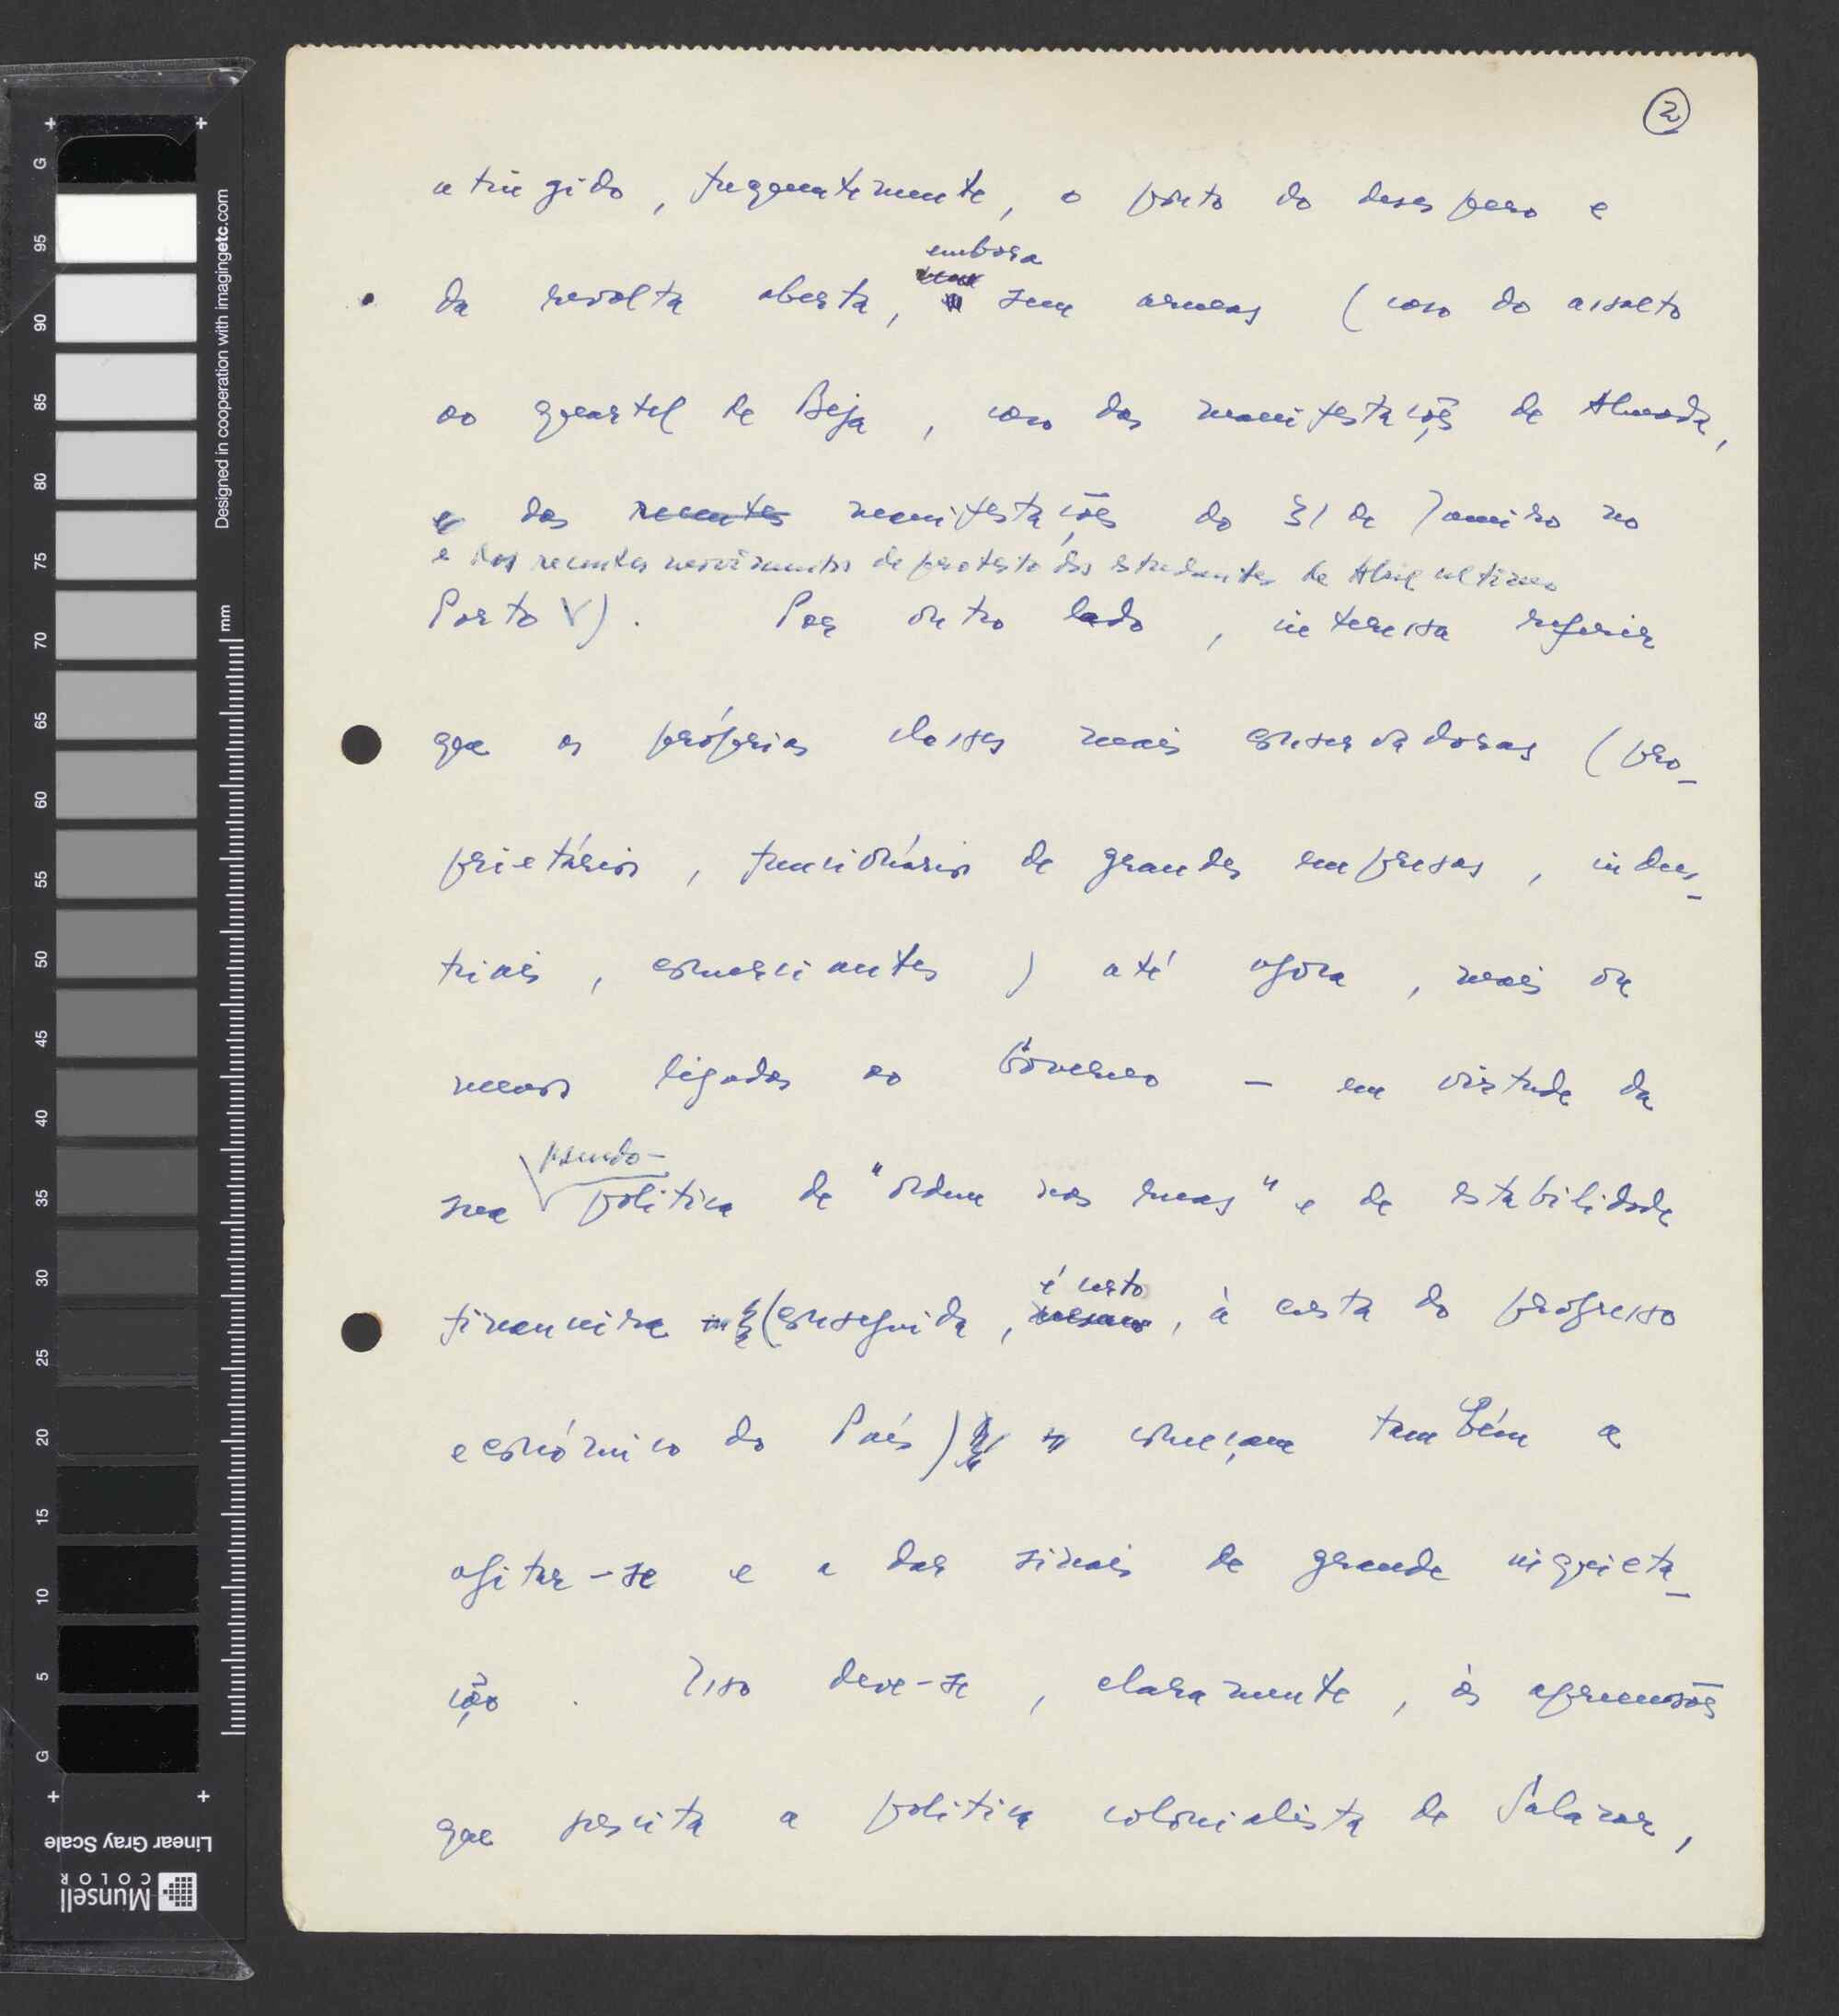 2
atingido, frequentemente, o ponto do desespero e
embora
da revolta aberta, sem armas (caso do assalto
ao quartel de Beja, caso das manifestações de Almada,
e das recentes manifestações do 31 de Janeiro no
e dos recentes movimentos de protesto dos estudantes de Abril ultimo
Porto V). Por outro lado, interessa referir
que as próprias classes mais conservadoras (pro-
prietários, funcionários de grandes empresas, indus-
triais, comerciantes) até agora, mais ou
menos ligadas ao Governo — em virtude da
pseudo-
sua política de "ordem nas ruas" e de estabilidade
é certo
financeira (conseguida, mesmo, à custa do progresso
económico do País) começam também a
agitar-se e a dar sinais de grande inquieta-
ção. Isso deve-se, claramente, às apreensões
que suscita a política colonialista de Salazar,
Designed in cooperation with imagingetc.com
mm
G
95
90
85
80
75
70
65
60
55
50
45
40
35
30
25
20
15
10
5
G
Linear Gray Scale
Munsell
COLOR